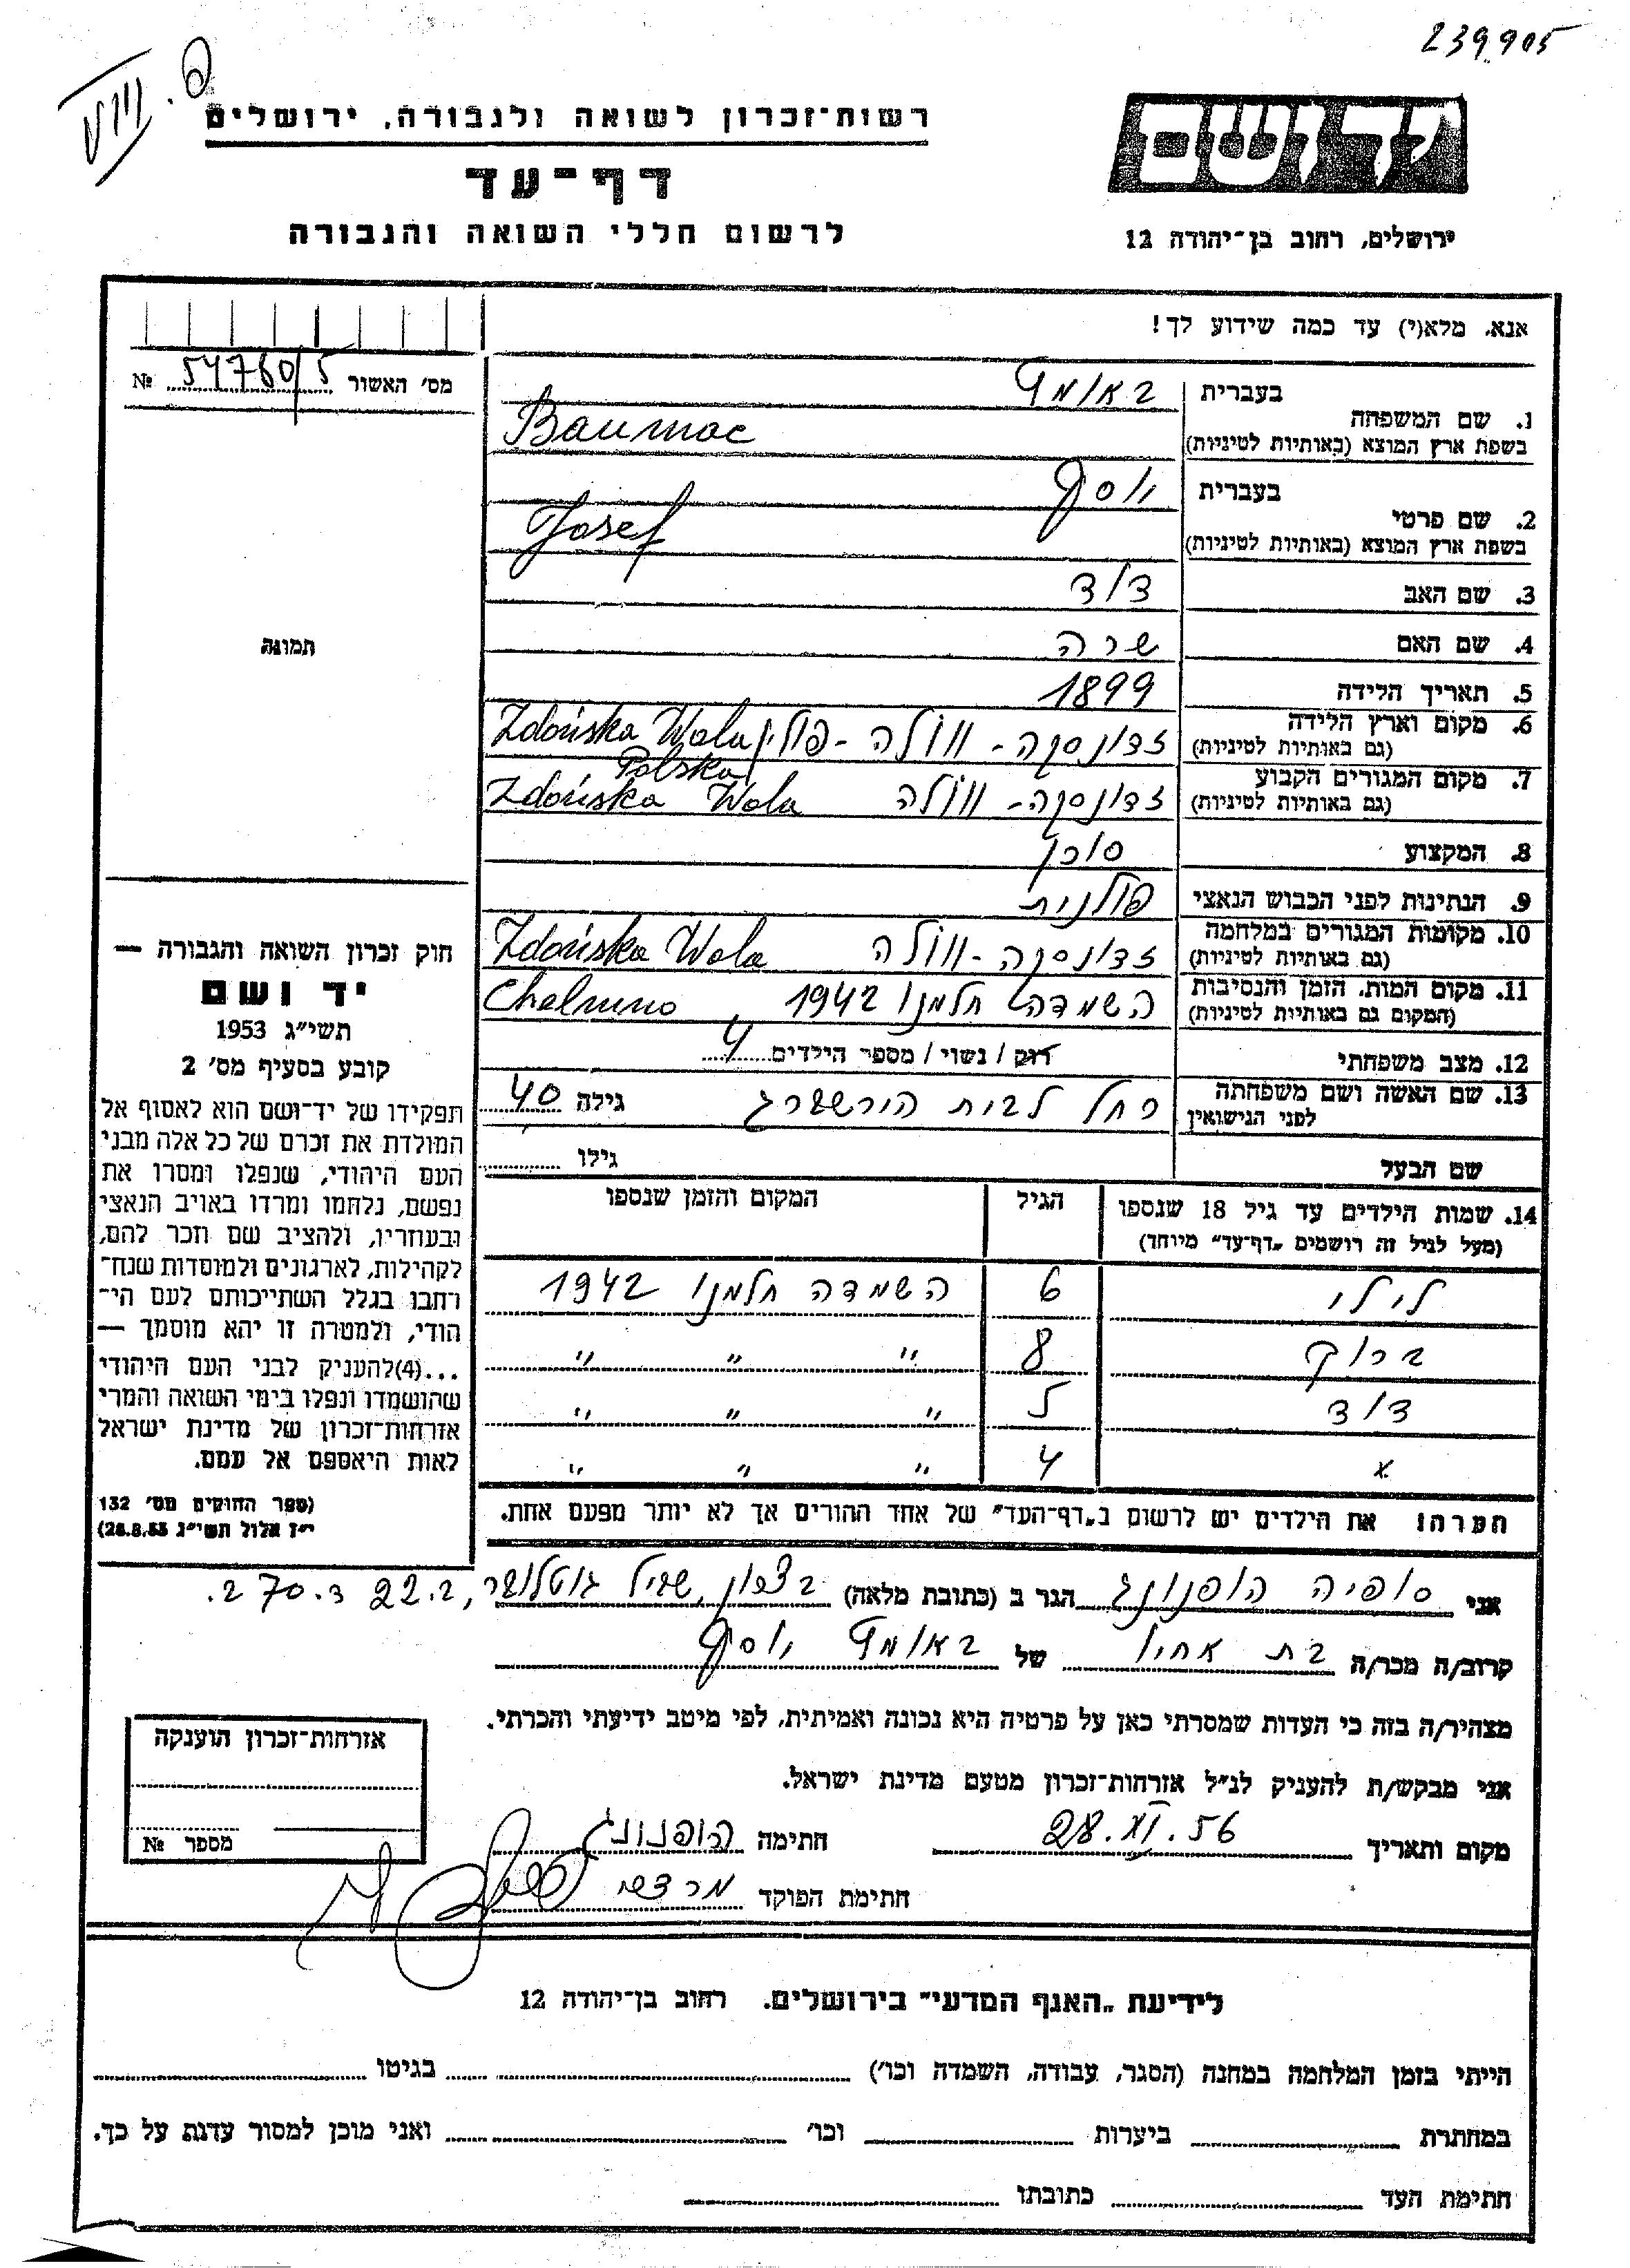 239905
VIII פ.
ידושם
ירושלים, רחוב בן־יהודה 12
רשות־זכרון לשואה ולגבורה, ירושלים
דף־עד
לרשום חללי השואה והגבורה
אנא, מלא(י) עד כמה שידוע לך!
מס׳ האשור 54760/5 №
תמונה
1. שם המשפחה בעברית באומץ
בשפת ארץ המוצא (באותיות לטיניות) Baumac
2. שם פרטי בעברית יוסף
בשפת ארץ המוצא (באותיות לטיניות) Josef
3. שם האב דוד
4. שם האם שרה
5. תאריך הלידה 1899
6. מקום וארץ הלידה (גם באותיות לטיניות) זדונסקה - וולה - פולין Zdońska Wola Polska
7. מקום המגורים הקבוע (גם באותיות לטיניות) זדונסקה - וולה Zdońska Wola
8. המקצוע סוכן
9. הנתינות לפני הכבוש הנאצי פולנית
10. מקומות המגורים במלחמה (גם באותיות לטיניות) זדונסקה - וולה Zdońska Wola
11. מקום המות, הזמן והנסיבות (המקום גם באותיות לטיניות) השמדה חלמנו 1942 Chelmno
12. מצב משפחתי רוק / נשוי / מספר הילדים 4
13. שם האשה ושם משפחתה לפני הנישואין רחל לבית הירשברג גילה 40
שם הבעל גילו
14. שמות הילדים עד גיל 18 שנספו (מעל לגיל זה רושמים „דף־עד״ מיוחד) הגיל המקום והזמן שנספו
לילי 6 השמדה חלמנו 1942
ברוך 8 " " "
דוד 5 " " "
x 4 " " "
הערה: את הילדים יש לרשום ב„דף־העד״ של אחד ההורים אך לא יותר מפעם אחת.
חוק זכרון השואה והגבורה —
יד ושם
תשי״ג 1953
קובע בסעיף מס׳ 2
תפקידו של יד־ושם הוא לאסוף אל
המולדת את זכרם של כל אלה מבני
העם היהודי, שנפלו ומסרו את
נפשם, נלחמו ומרדו באויב הנאצי
ובעוזריו, ולהציב שם וזכר להם,
לקהילות, לארגונים ולמוסדות שנח־
רחבו בגלל השתייכותם לעם הי־
הודי, ולמטרה זו יהא מוסמך —
...(4)להעניק לבני העם היהודי
שהושמדו ונפלו בימי השואה והמרי
אזרחות־זכרון של מדינת ישראל
לאות היאספם אל עמם.
(ספר החוקים מס׳ 132
י״ז אלול תשי״ג 28.8.53)
אני סופיה הופנונג הגר ב (כתובת מלאה)
קרוב/ה מכר/ה בת אחיו של באומץ יוסף
מצהיר/ה בזה כי העדות שמסרתי כאן על פרטיה היא נכונה ואמיתית, לפי מיטב ידיעתי והכרתי.
אני מבקש/ת להעניק לנ״ל אזרחות־זכרון מטעם מדינת ישראל.
מקום ותאריך 28.XI.56 חתימה הופנונג
חתימת הפוקד מרדכי
אזרחות־זכרון הוענקה
מספר №
לידיעת „האגף המדעי״ בירושלים. רחוב בן־יהודה 12
הייתי בזמן המלחמה במחנה (הסגר, עבודה, השמדה וכו׳) בגיטו
במחתרת ביערות וכו׳ ואני מוכן למסור עדות על כך.
חתימת העד כתובתו